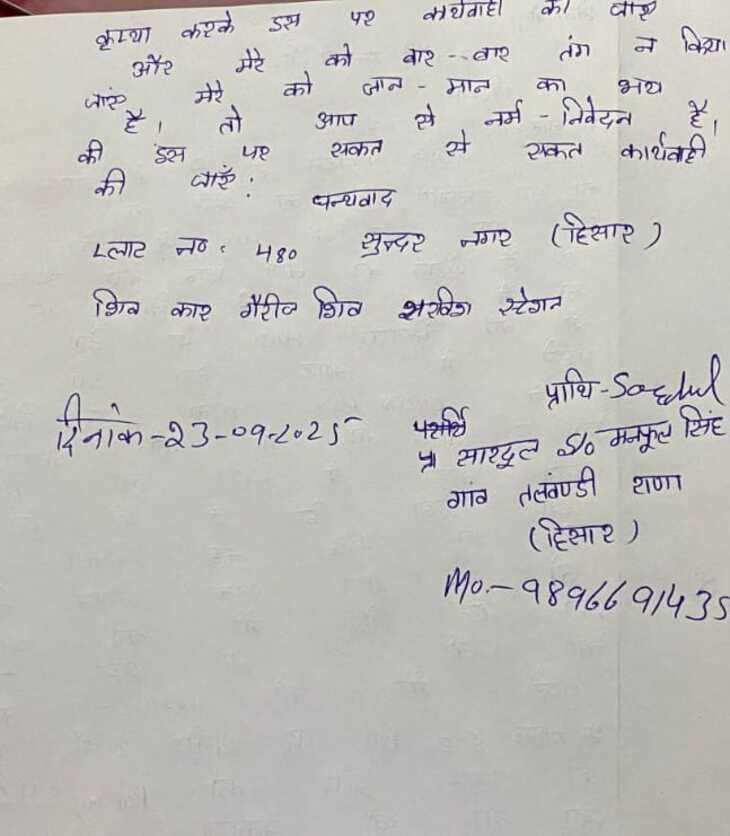 कृप्या करके इस पर कार्यवाही की जाए
और मेरे को बार--बार तंग न किया
जाएं मेरे को जान-मान का भय
है। तो आप से नर्म-निवेदन है,
की इस पर सकत से सकत कार्यवाही
की जाएं:
धन्यवाद
प्लाट न० : 480 सुन्दर नगर (हिसार)
शिव कार गैरीज शिव सरविज स्टेशन
प्राथि -
दिनांक -23-09-2025
सारदूल S/o मनफूल सिंह
गांव तलवण्डी राणा
(हिसार)
Mo.- 9896691435